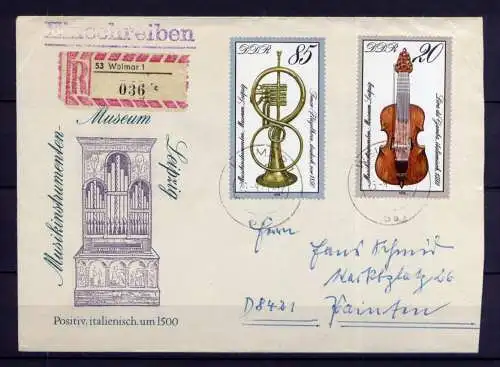 Einschreiben
R
53 Weimar 1
036 c
Musikinstrumenten-
Museum
Leipzig
Positiv, italienisch, um 1500
DDR 85
Musikinstrumenten-Museum Leipzig
DDR 20
Musikinstrumenten-Museum Leipzig
Herrn
Hans Schmid
Marktplatz 26
D8421 Painten